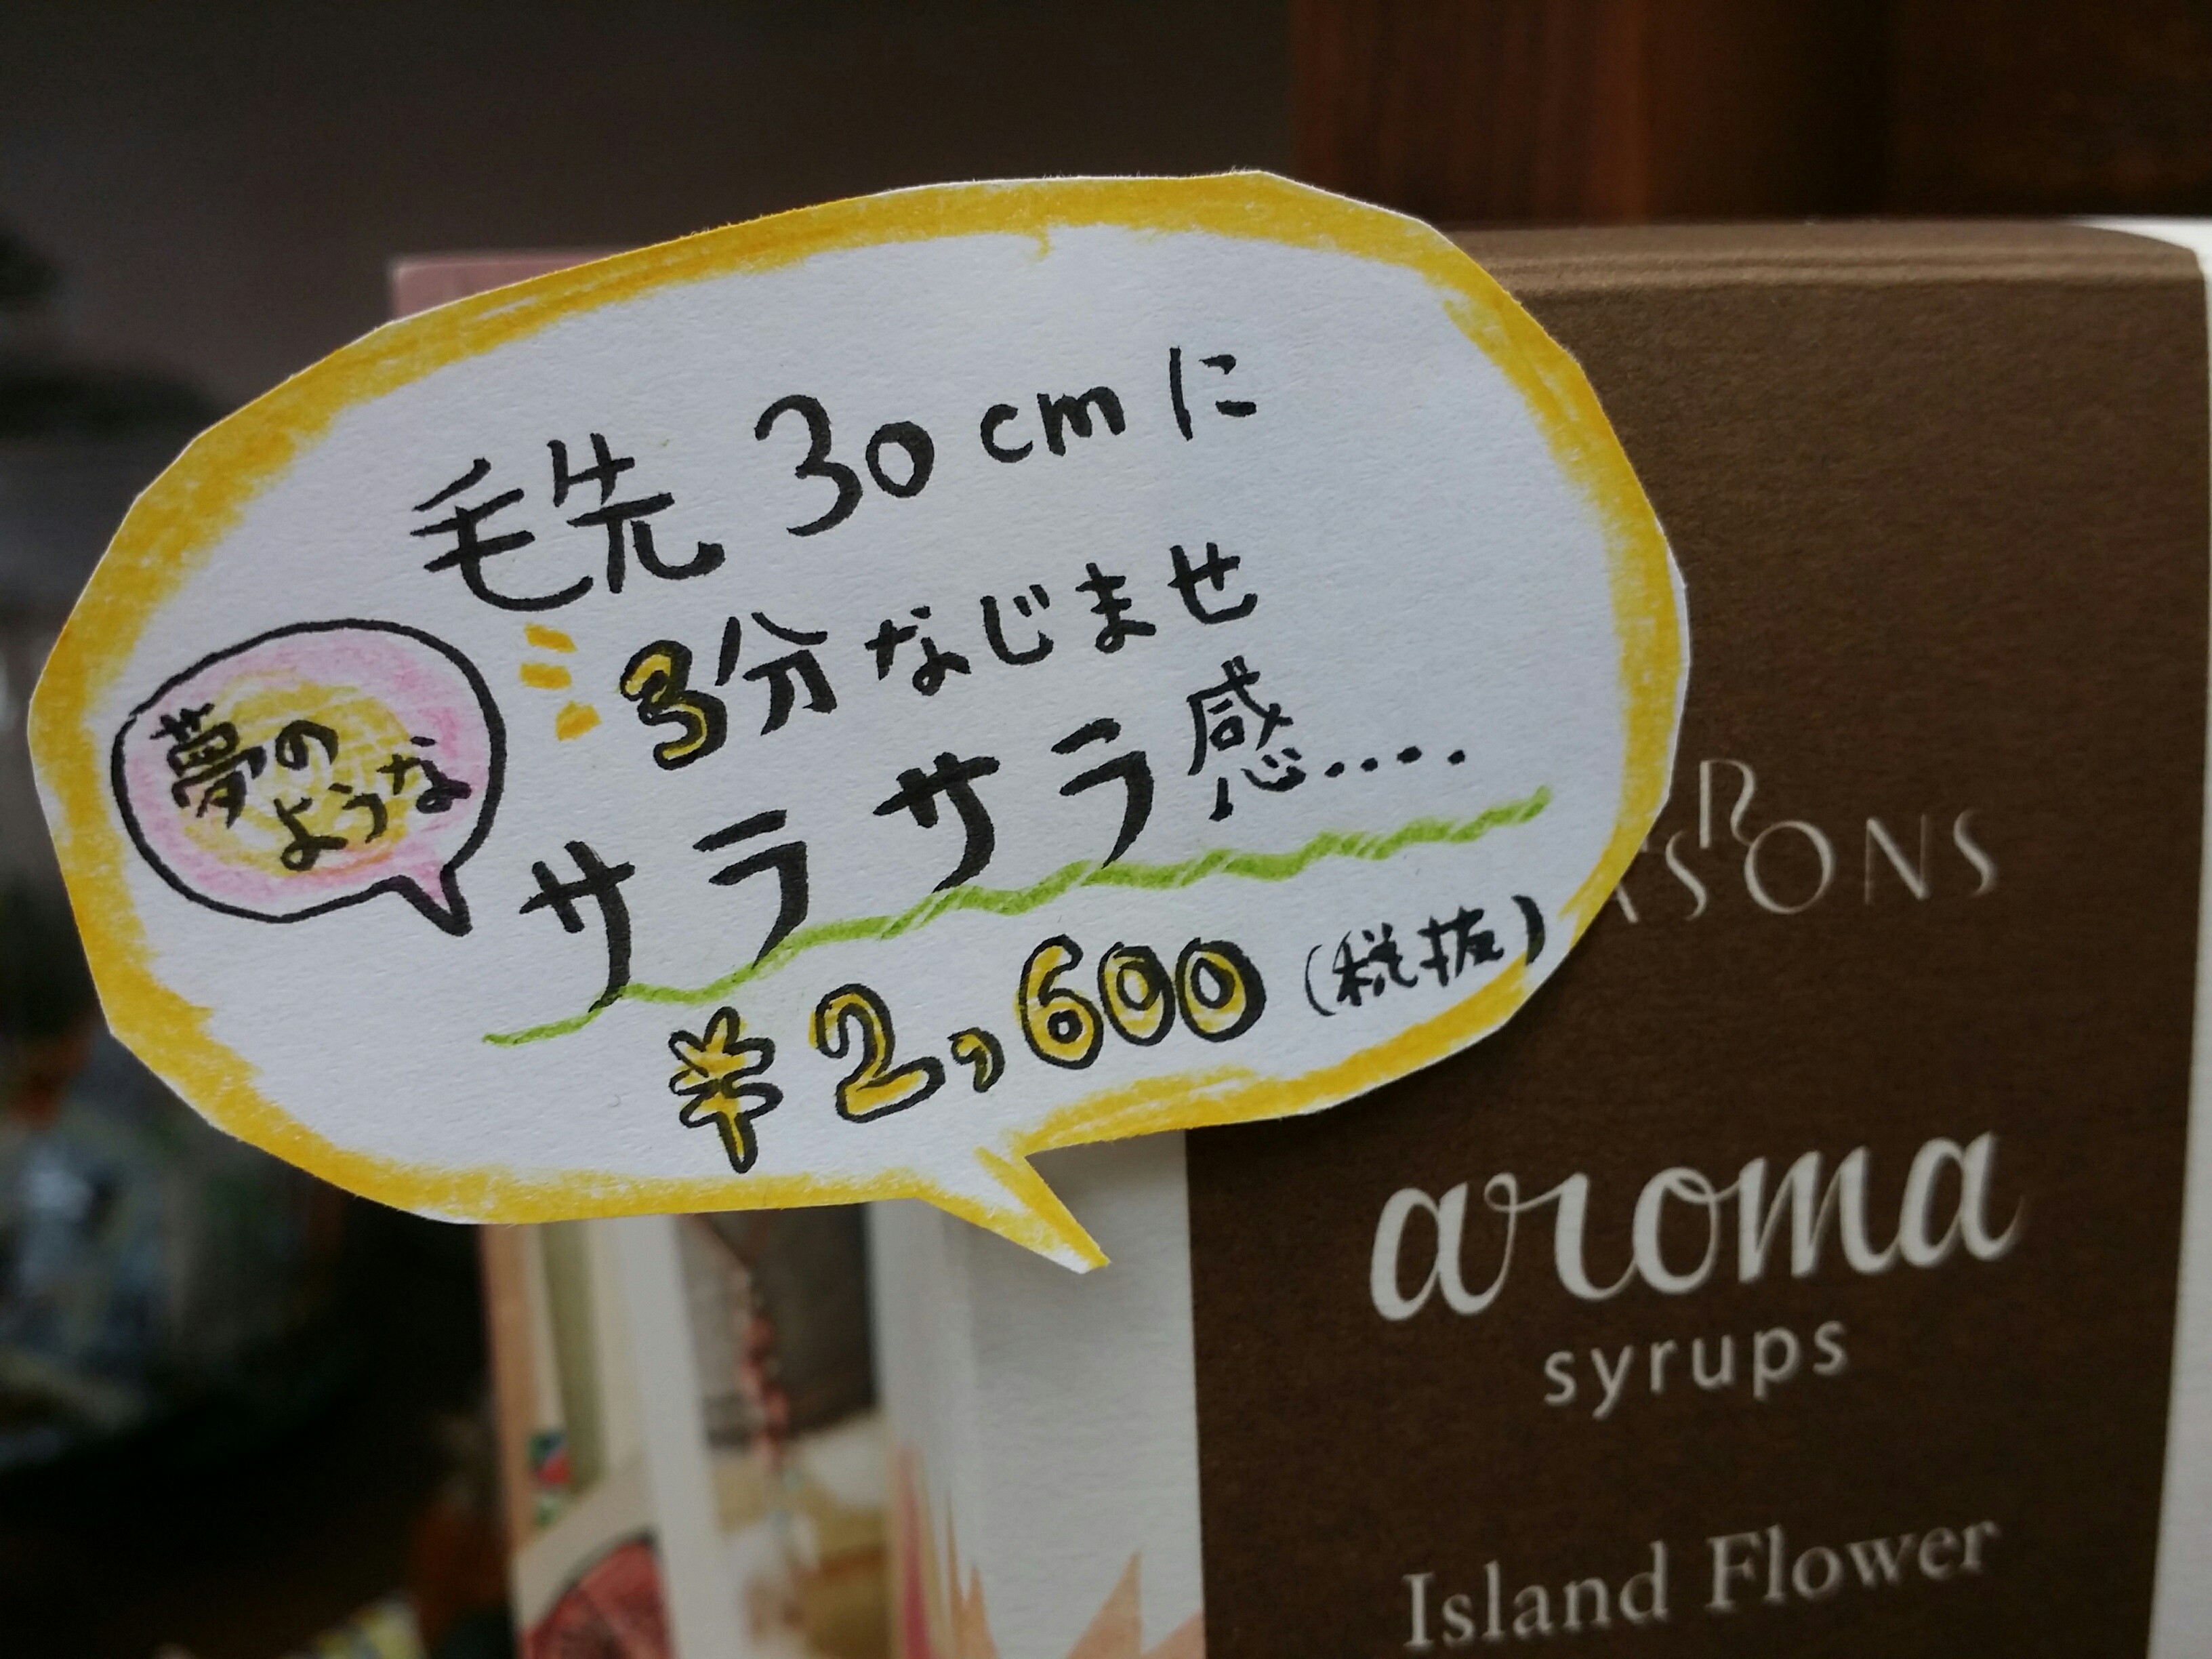 毛先 30cmに
3分なじませ
夢の
ような
サラサラ感....
¥2,600 (税抜)
aroma
syrups
Island Flower